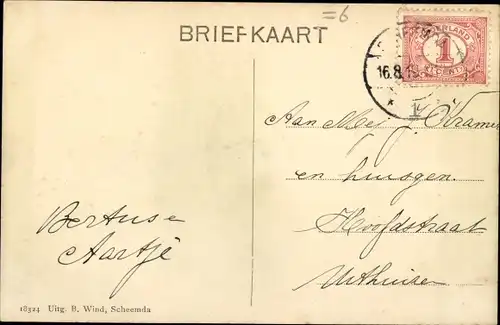 =6
BRIEFKAART
NEDERLAND
1
CENT
16.8.19
1
Aan Mej. Kramer
en huisgen.
Hoofdstraat
Uithuizen
Bertus e
Aartje
18324 Uitg. B. Wind, Scheemda